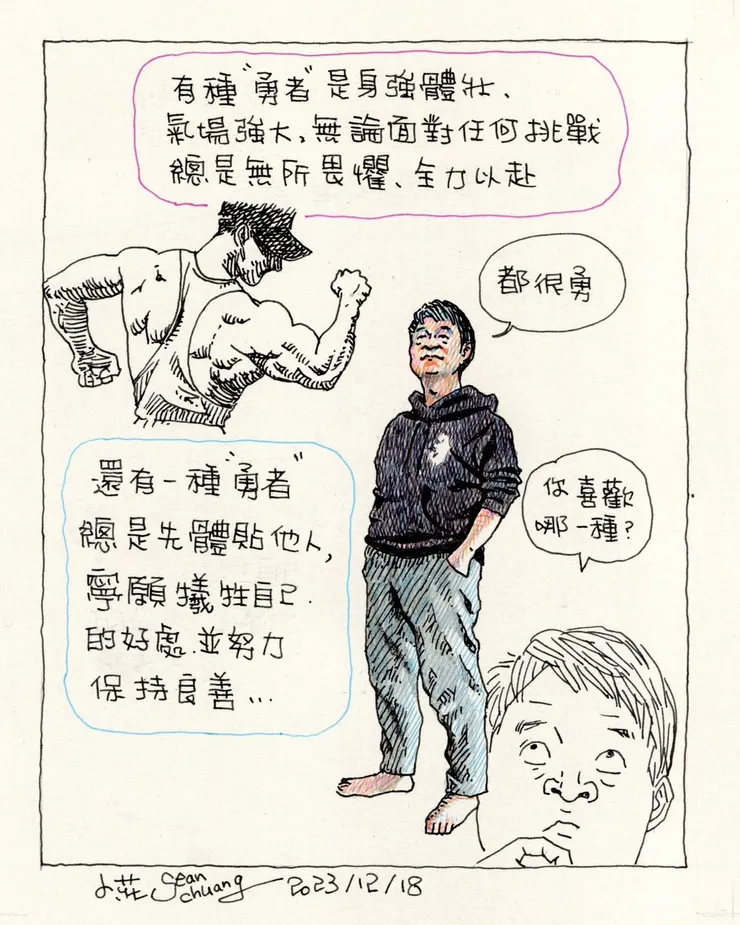 有種"勇者"是身強體壯、
氣場強大,無論面對任何挑戰
總是無所畏懼、全力以赴
都很勇
還有一種"勇者"
總是先體貼他人,
寧願犧牲自己.
的好處.並努力
保持良善...
你喜歡
哪一種?
小莊 Sean chuang 2023/12/18